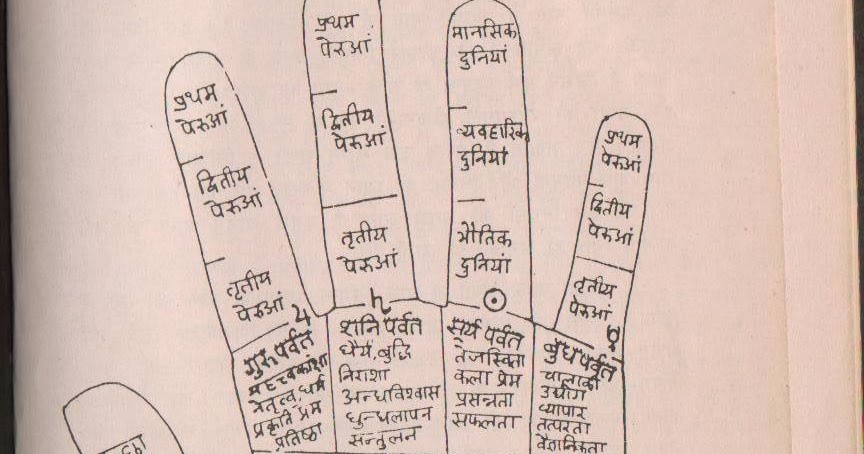 प्रथम
पेरुआं
द्वितीय
पेरुआं
तृतीय
पेरुआं
♃
गुरु पर्वत
महत्त्वकांक्षा
नेतृत्व, धर्म
प्रकृति प्रेम
प्रतिष्ठा
प्रथम
पेरुआं
द्वितीय
पेरुआं
तृतीय
पेरुआं
♄
शनि पर्वत
धैर्य, बुद्धि
निराशा
अन्धविश्वास
धुन्धलापन
सन्तुलन
मानसिक
दुनियां
व्यवहारिक
दुनियां
भौतिक
दुनियां
☉
सूर्य पर्वत
तेजस्विता
कला प्रेम
प्रसन्नता
सफलता
प्रथम
पेरुआं
द्वितीय
पेरुआं
तृतीय
पेरुआं
☿
बुध पर्वत
चालाकी
उद्योग
व्यापार
तत्परता
वैज्ञानिकता